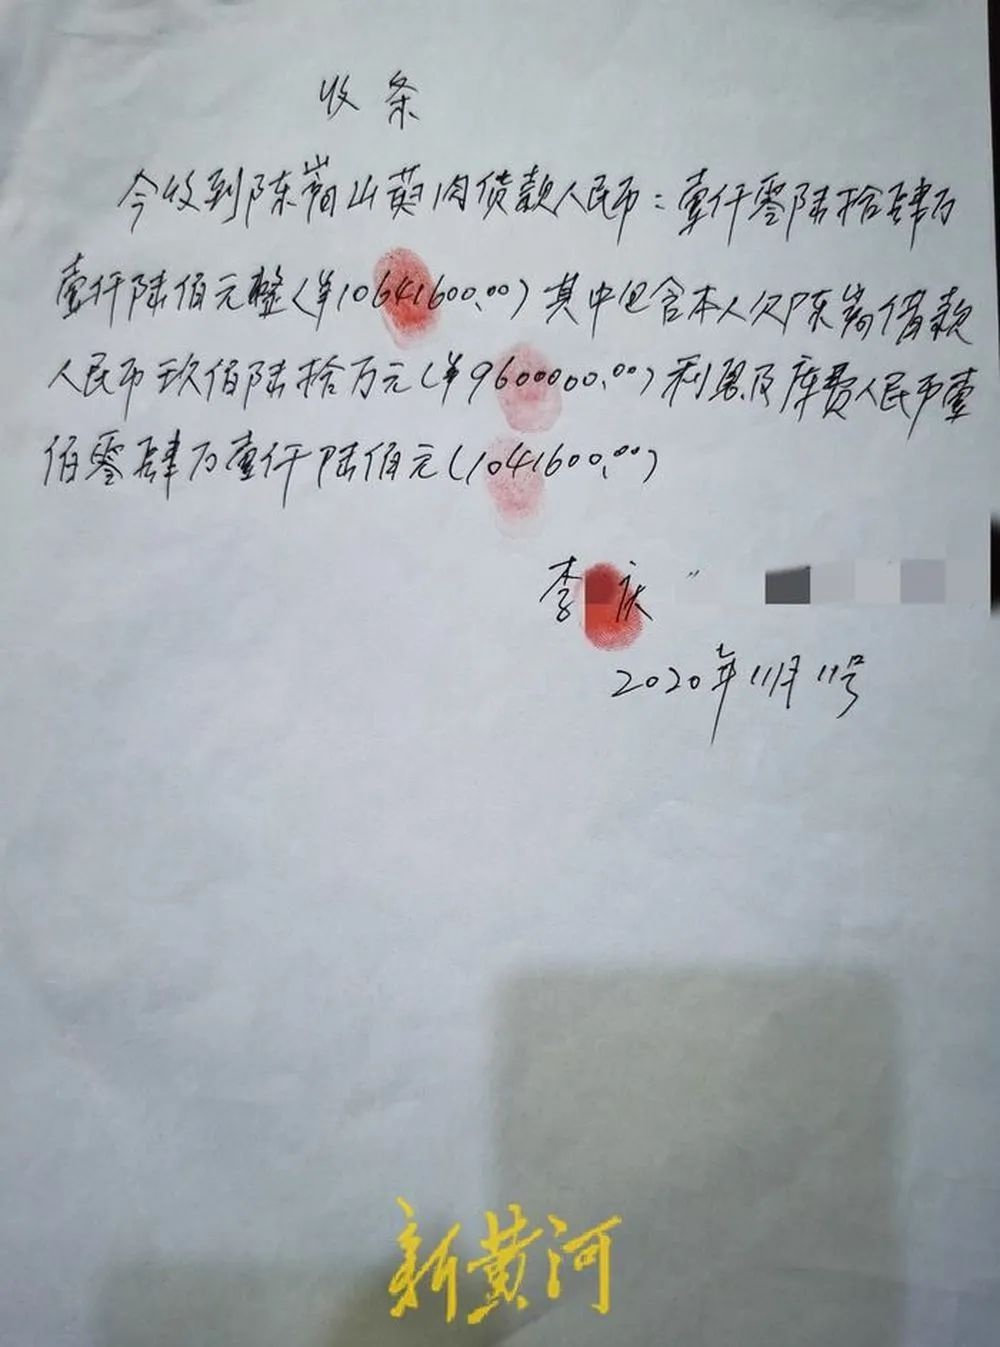 收条
今收到陈嵩山萸肉货款人民币：壹仟零陆拾肆万
壹仟陆佰元整(￥10641600.00)其中包含本人欠陈嵩借款
人民币玖佰陆拾万元(￥9600000.00)利息及库费人民币壹
佰零肆万壹仟陆佰元(1041600.00)
李 庆
2020年11月11号
新黄河